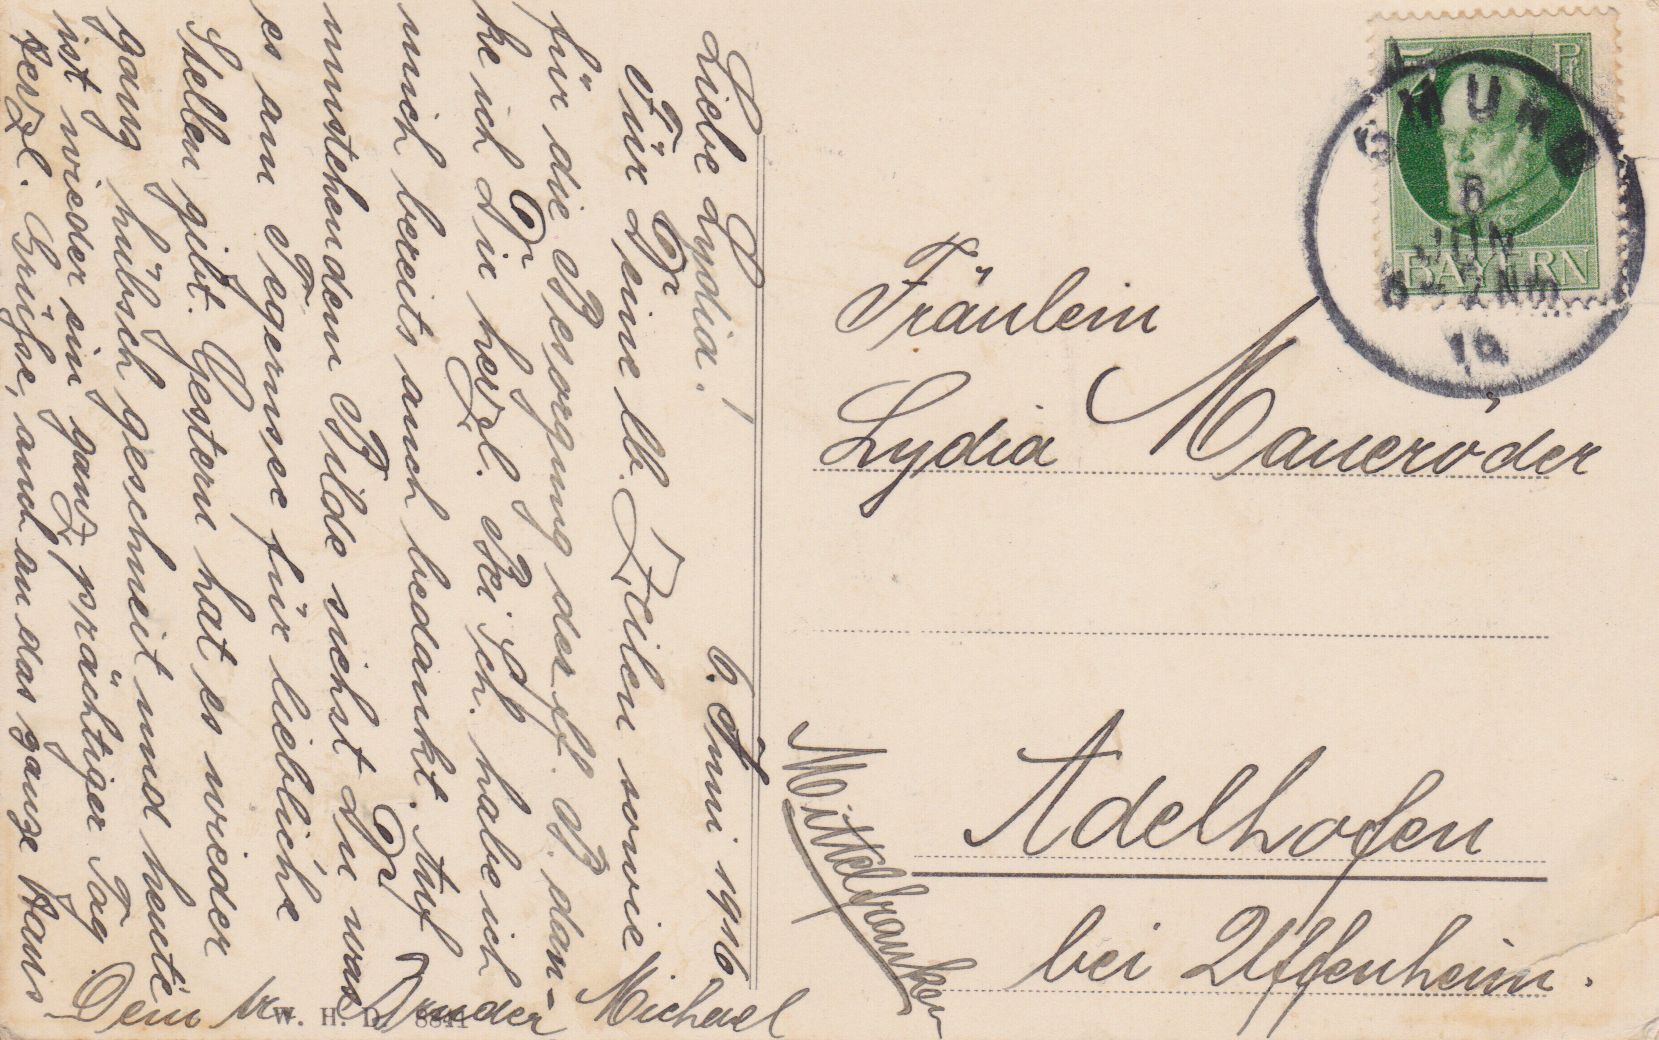 6. Juni 1916.
Liebe Lydia!
Für Deine lb. Zeilen sowie
für die Besorgung der fl. B. dan-
ke ich Dir herzl. Bei Sch. habe ich
mich bereits auch bedankt. Auf
umstehendem Bilde siehst Du was
es am Tegernsee für liebliche
Stellen gibt. Gestern hat es wieder
ganz hübsch geschneit und heute
ist wieder ein ganz prächtiger Tag.
Herzl. Grüße, auch an das ganze Haus
Dein Bruder Michael
W. H. D. 8844
5 Pf
BAYERN
GMUND
6
JUN
16
Fräulein
Lydia Maueröder
Adelhofen
bei Uffenheim.
Mittelfranken